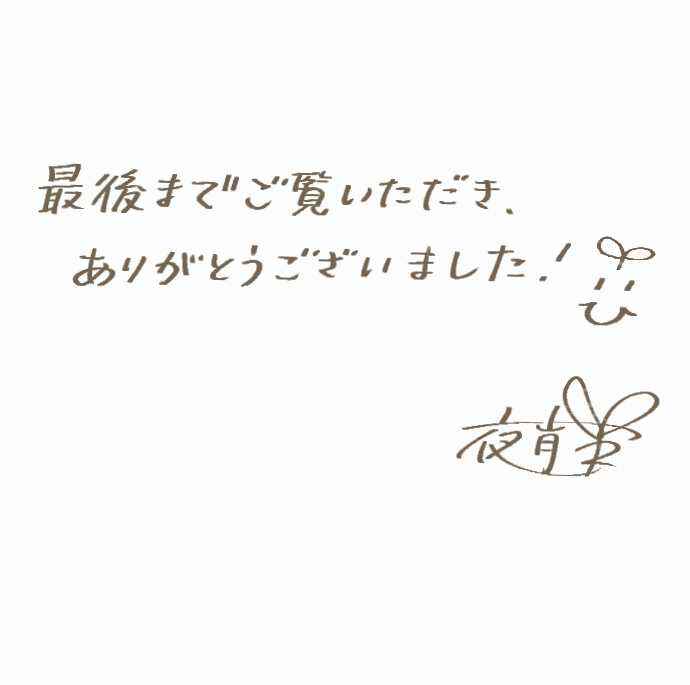 最後までご覧いただき、
ありがとうございました!
夜肖